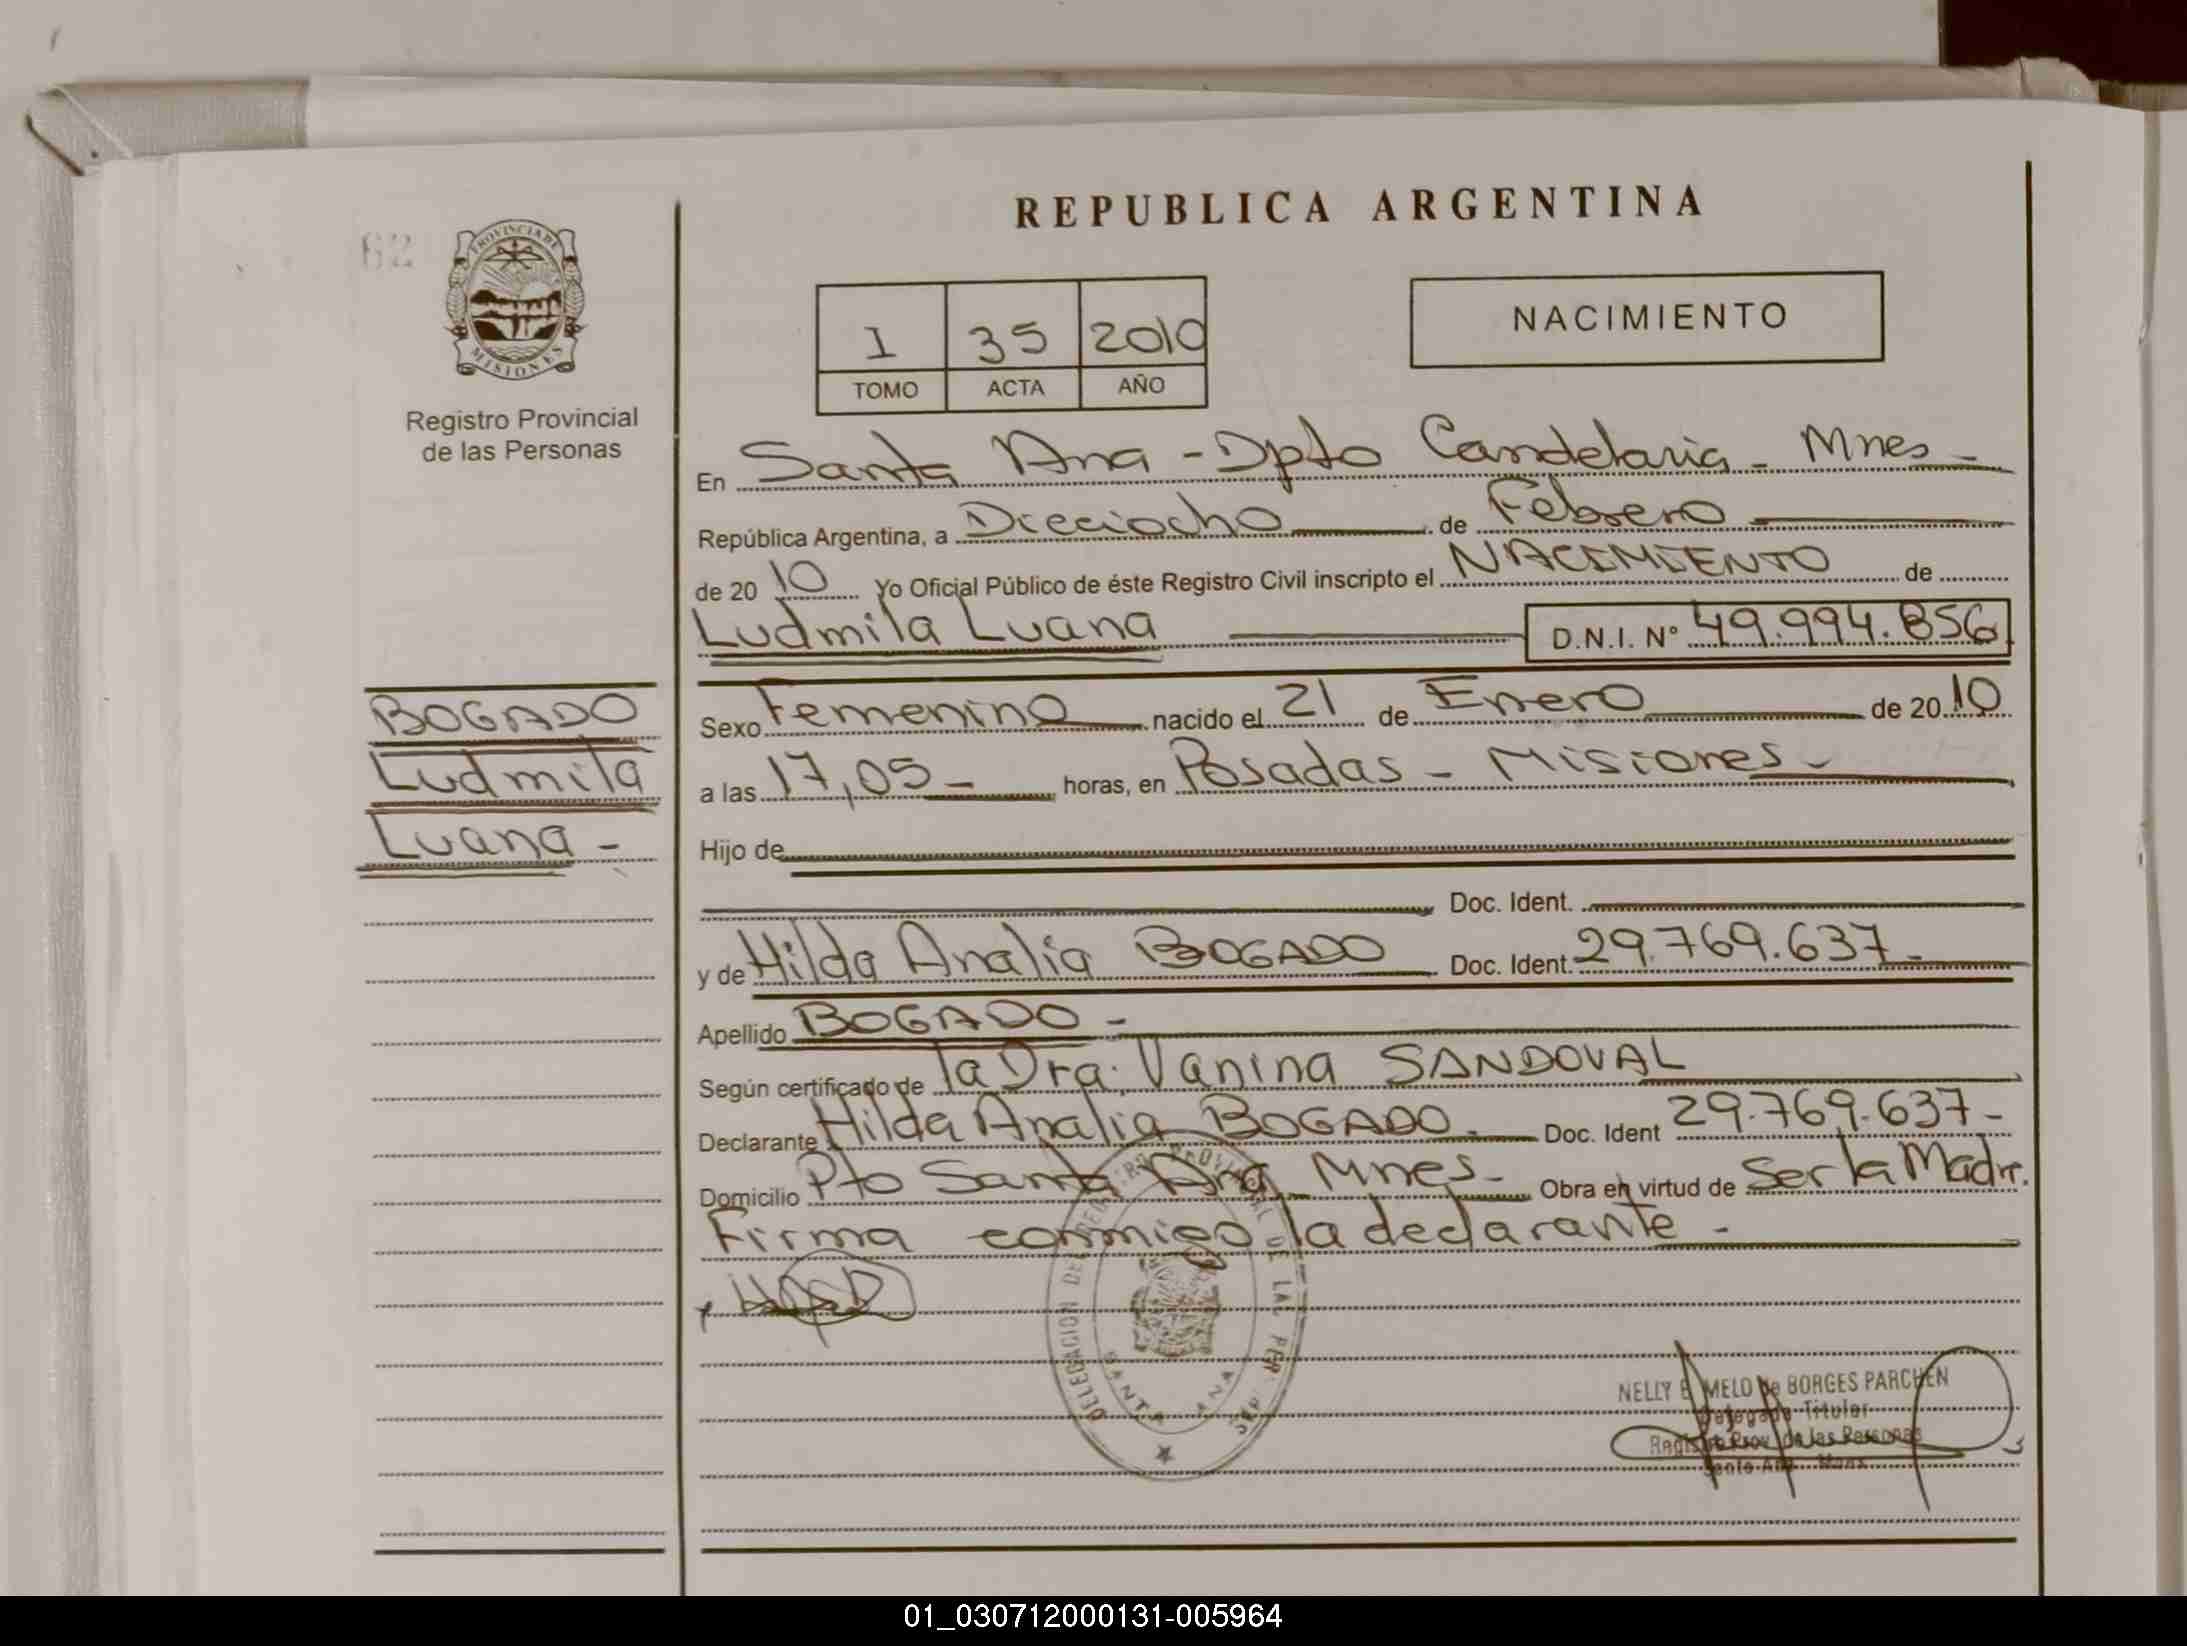 REPUBLICA ARGENTINA
62
PROVINCIA DE
MISIONES
Registro Provincial
de las Personas
1 35 2010
TOMO ACTA AÑO
NACIMIENTO
En Santa Ana - Dpto Candelaria - Mnes -
República Argentina, a Dieciocho de Febrero
de 2010 Yo Oficial Público de éste Registro Civil inscripto el NACIMIENTO de
Ludmila Luana D.N.I. Nº 49.994.856
BOGADO
Ludmila
Luana -
Sexo Femenino nacido el 21 de Enero de 2010
a las 17,05 - horas, en Posadas - Misiones -
Hijo de
Doc. Ident.
y de Hilda Analia BOGADO Doc. Ident. 29.769.637 -
Apellido BOGADO -
Según certificado de la Dra. Vanina SANDOVAL
Declarante Hilda Analia BOGADO - Doc. Ident 29.769.637 -
Domicilio Pto Santa Ana - Mnes - Obra en virtud de Ser la Madre.
Firma conmigo la declarante -
DELEGACION DE REGISTRO PROVINCIAL DE LAS PER
SANTA ANA
NELLY E MELO de BORGES PARCHEN
Delegada Titular
Registro Prov. de las Personas
Santa Ana
01_030712000131-005964